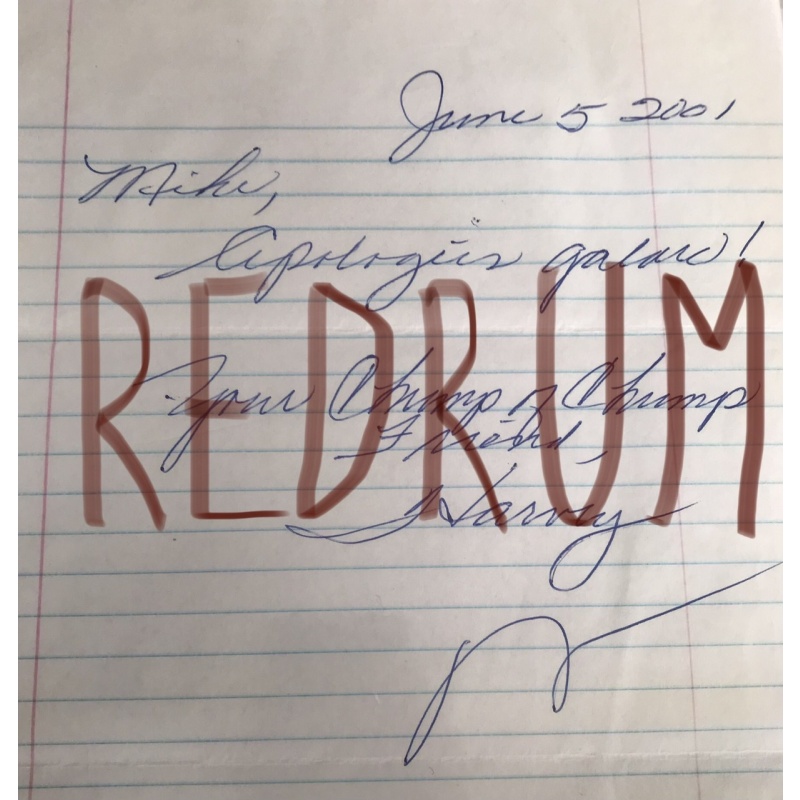 June 5 2001
Mike,
Apologies galore!
REDRUM
Your Chump of Chump
Friend,
Harvey